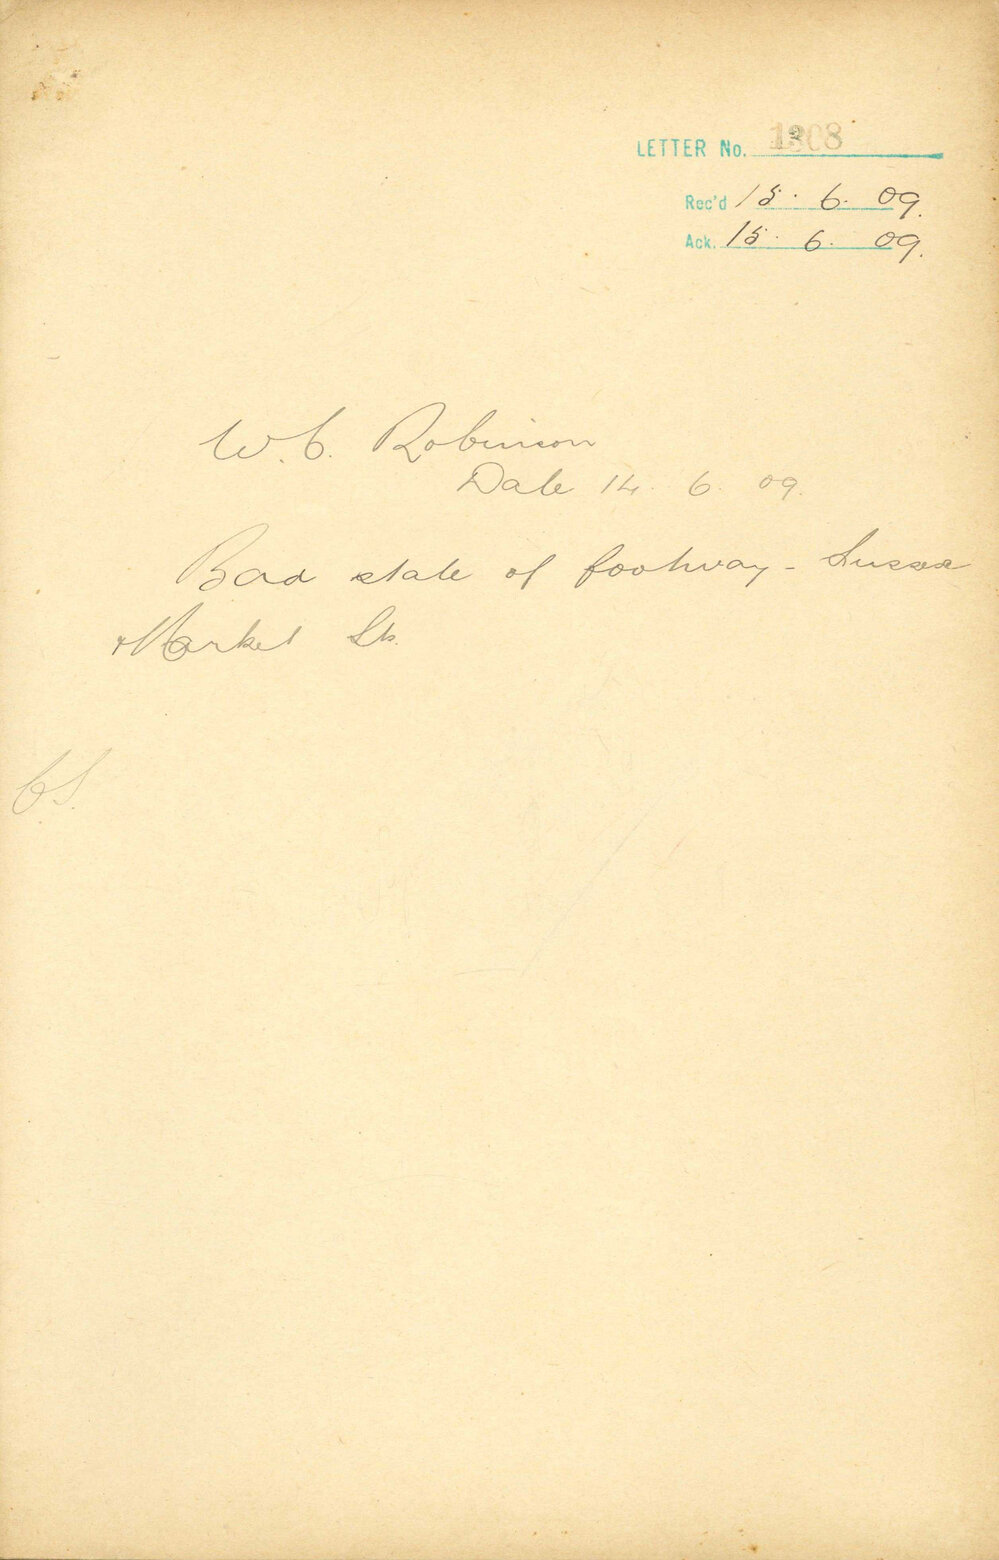 LETTER No. 1308
Rec'd 15. 6. 09.
Ack. 15. 6. 09.
W. C. Robinson
Date 14. 6. 09.
Bad state of footway - Sussex
& Market Sts.
CS.